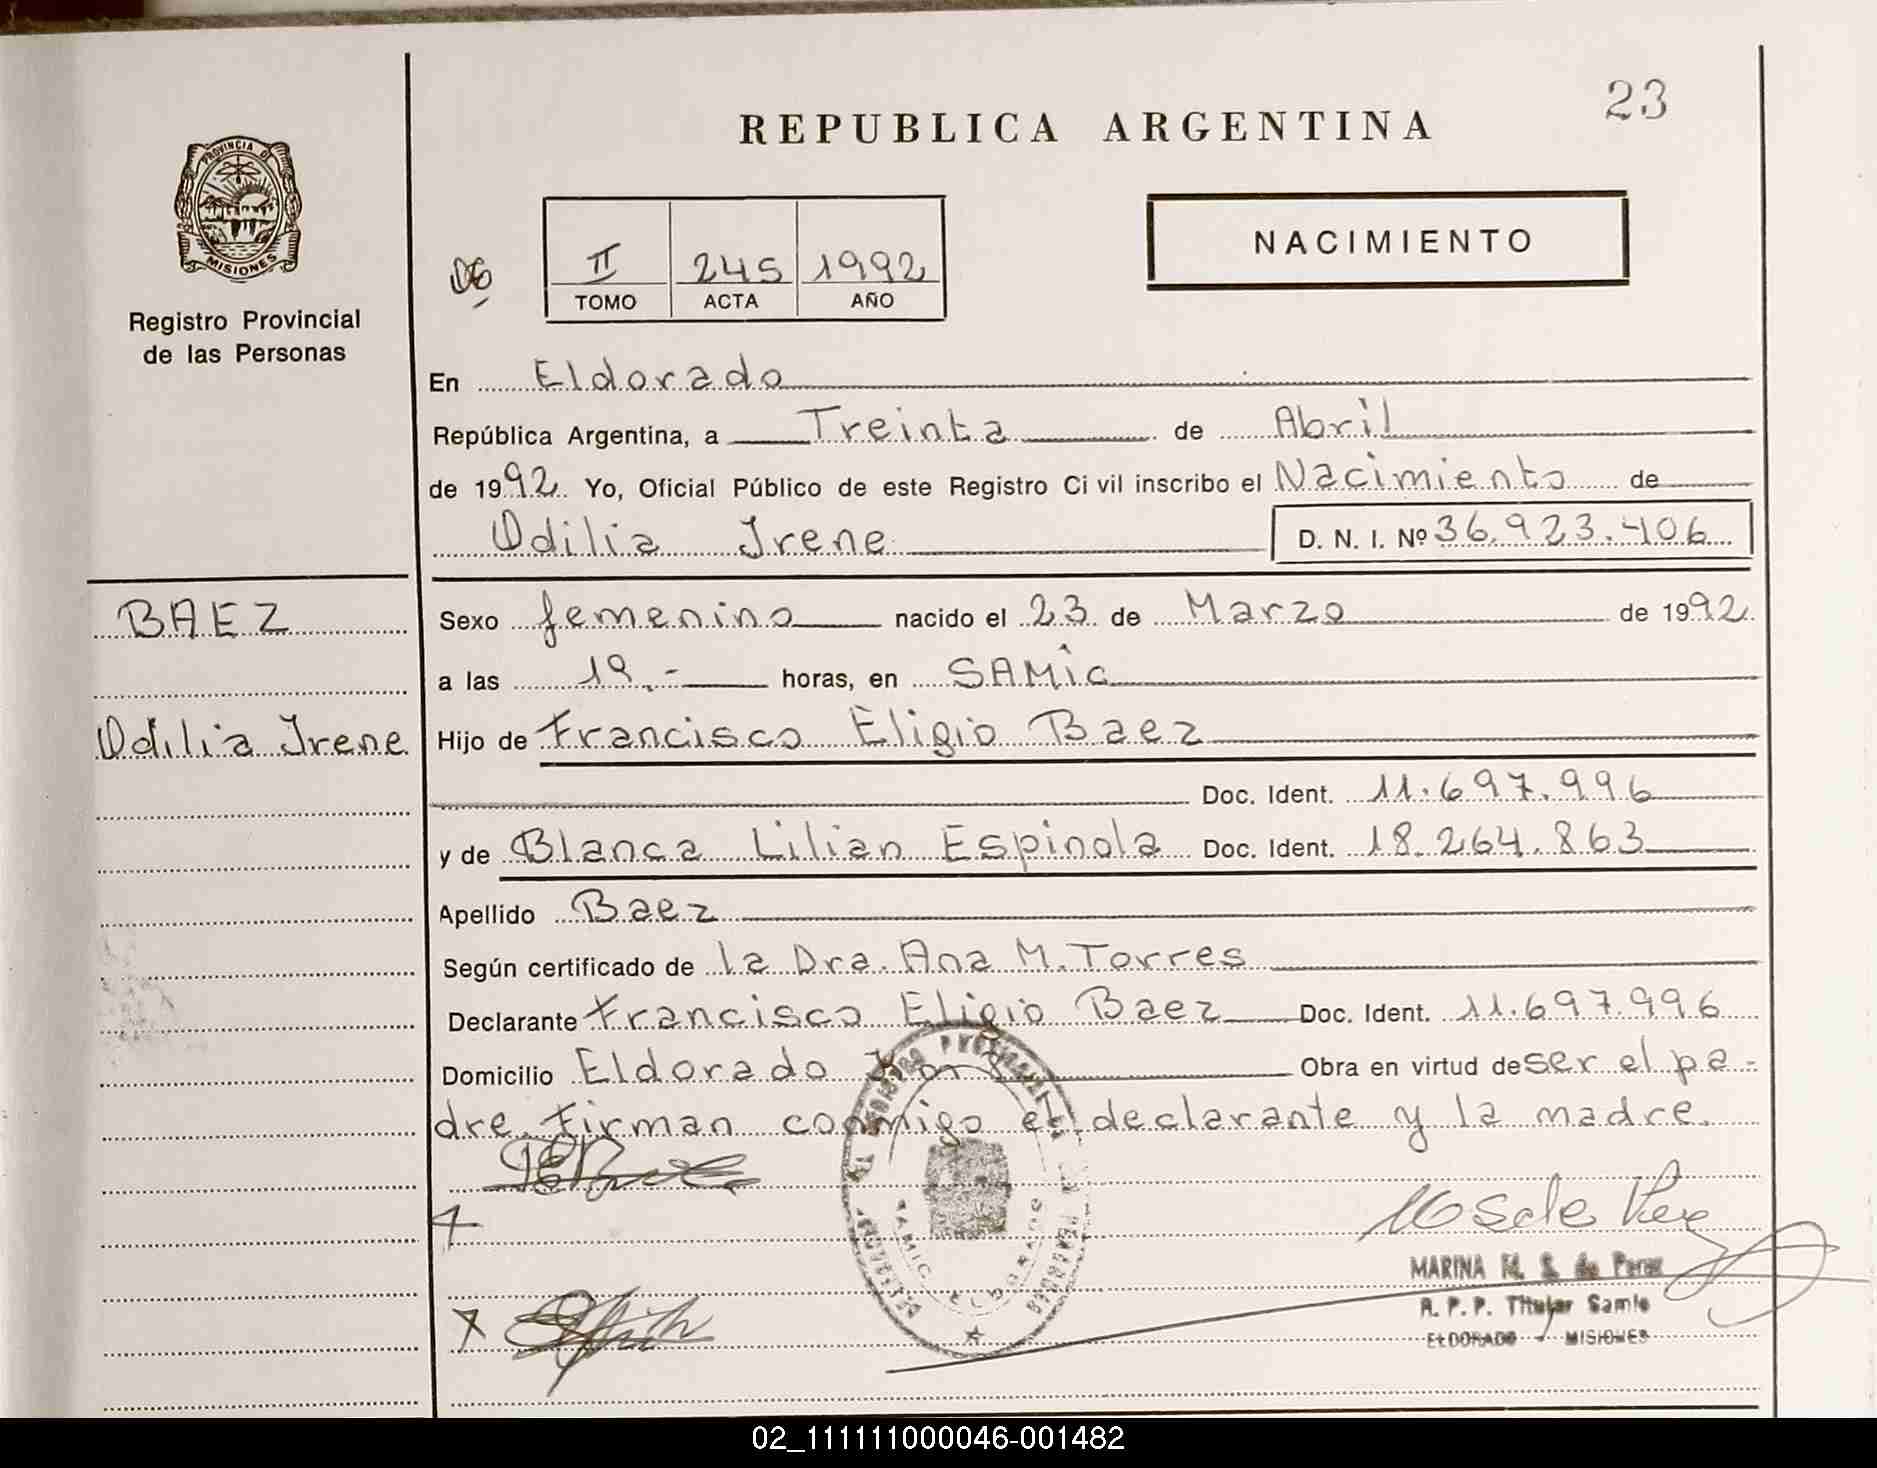 23
REPUBLICA ARGENTINA
PROVINCIA DE
MISIONES
Registro Provincial
de las Personas
06
II 245 1992
TOMO ACTA AÑO
NACIMIENTO
En Eldorado
República Argentina, a Treinta de Abril
de 1992. Yo, Oficial Público de este Registro Civil inscribo el Nacimiento de
Odilia Irene D. N. I. Nº 36.923.406
BAEZ
Odilia Irene
Sexo femenino nacido el 23 de Marzo de 1992.
a las 19.- horas, en SAMic
Hijo de Francisco Eligio Baez
Doc. Ident. 11.697.996
y de Blanca Lilian Espinola Doc. Ident. 18.264.863
Apellido Baez
Según certificado de la Dra. Ana M. Torres
Declarante Francisco Eligio Baez Doc. Ident. 11.697.996
Domicilio Eldorado Km Obra en virtud de ser el pa-
dre. Firman conmigo el declarante y la madre.
SAMIC ELDORADO
MARINA M. S. de Perez
R. P. P. Titular Samic
ELDORADO - MISIONES
02_111111000046-001482